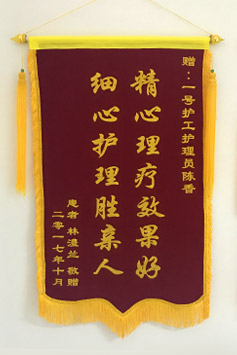 赠：一号护工护理员陈香
精心理疗效果好
细心护理胜亲人
患者 林湿兰 敬赠
二零一七年十月